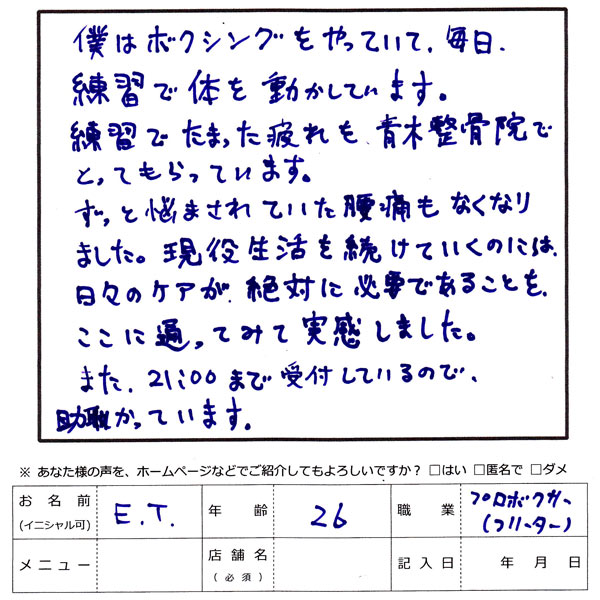 僕はボクシングをやっていて、毎日、
練習で体を動かしています。
練習でたまった疲れも、青木整骨院で
とってもらっています。
ずっと悩まされていた腰痛もなくなり
ました。現役生活を続けていくのには、
日々のケアが、絶対に必要であることを、
ここに通ってみて実感しました。
また、21:00まで受付しているので、
助かっています。
※ あなた様の声を、ホームページなどでご紹介してもよろしいですか? □はい □匿名で □ダメ
お名前 (イニシャル可) E.T. 年齢 26 職業 プロボクサー (フリーター)
メニュー 店舗名 (必須) 記入日 年 月 日